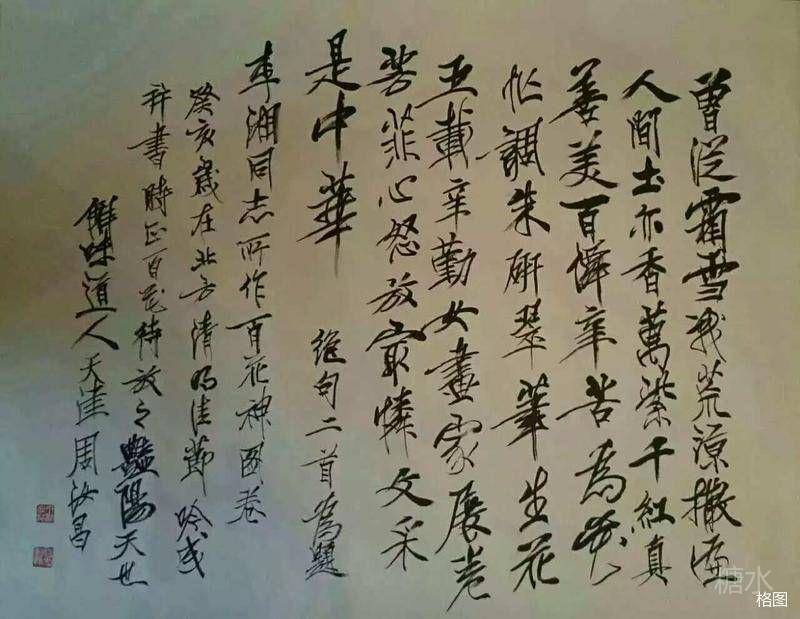 曾從霜雪戰荒涼撒遍
人間土亦香萬紫千紅真
善美百
辛苦為花
忙調朱研翠筆生花
五載辛勤女畫家展卷
芳菲心怒放最憐文采
是中華
絕句二首為題
車湘同志所作百花神圖卷
癸亥歲在北京清明佳節吟成
并書時正百花待放之艷陽天也
解味道人天津周汝昌
糖水
格图